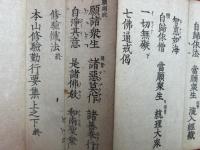 自歸依法 當願衆生 深入經蔵
智慧如海
自歸依僧 當願衆生 統理大衆
一切無礙
七佛通戒偈
願諸衆生 諸惡莫作 諸善奉行
自淨其意 是諸佛教
修驗懴法 終
本山修驗勤行要集上之下 終